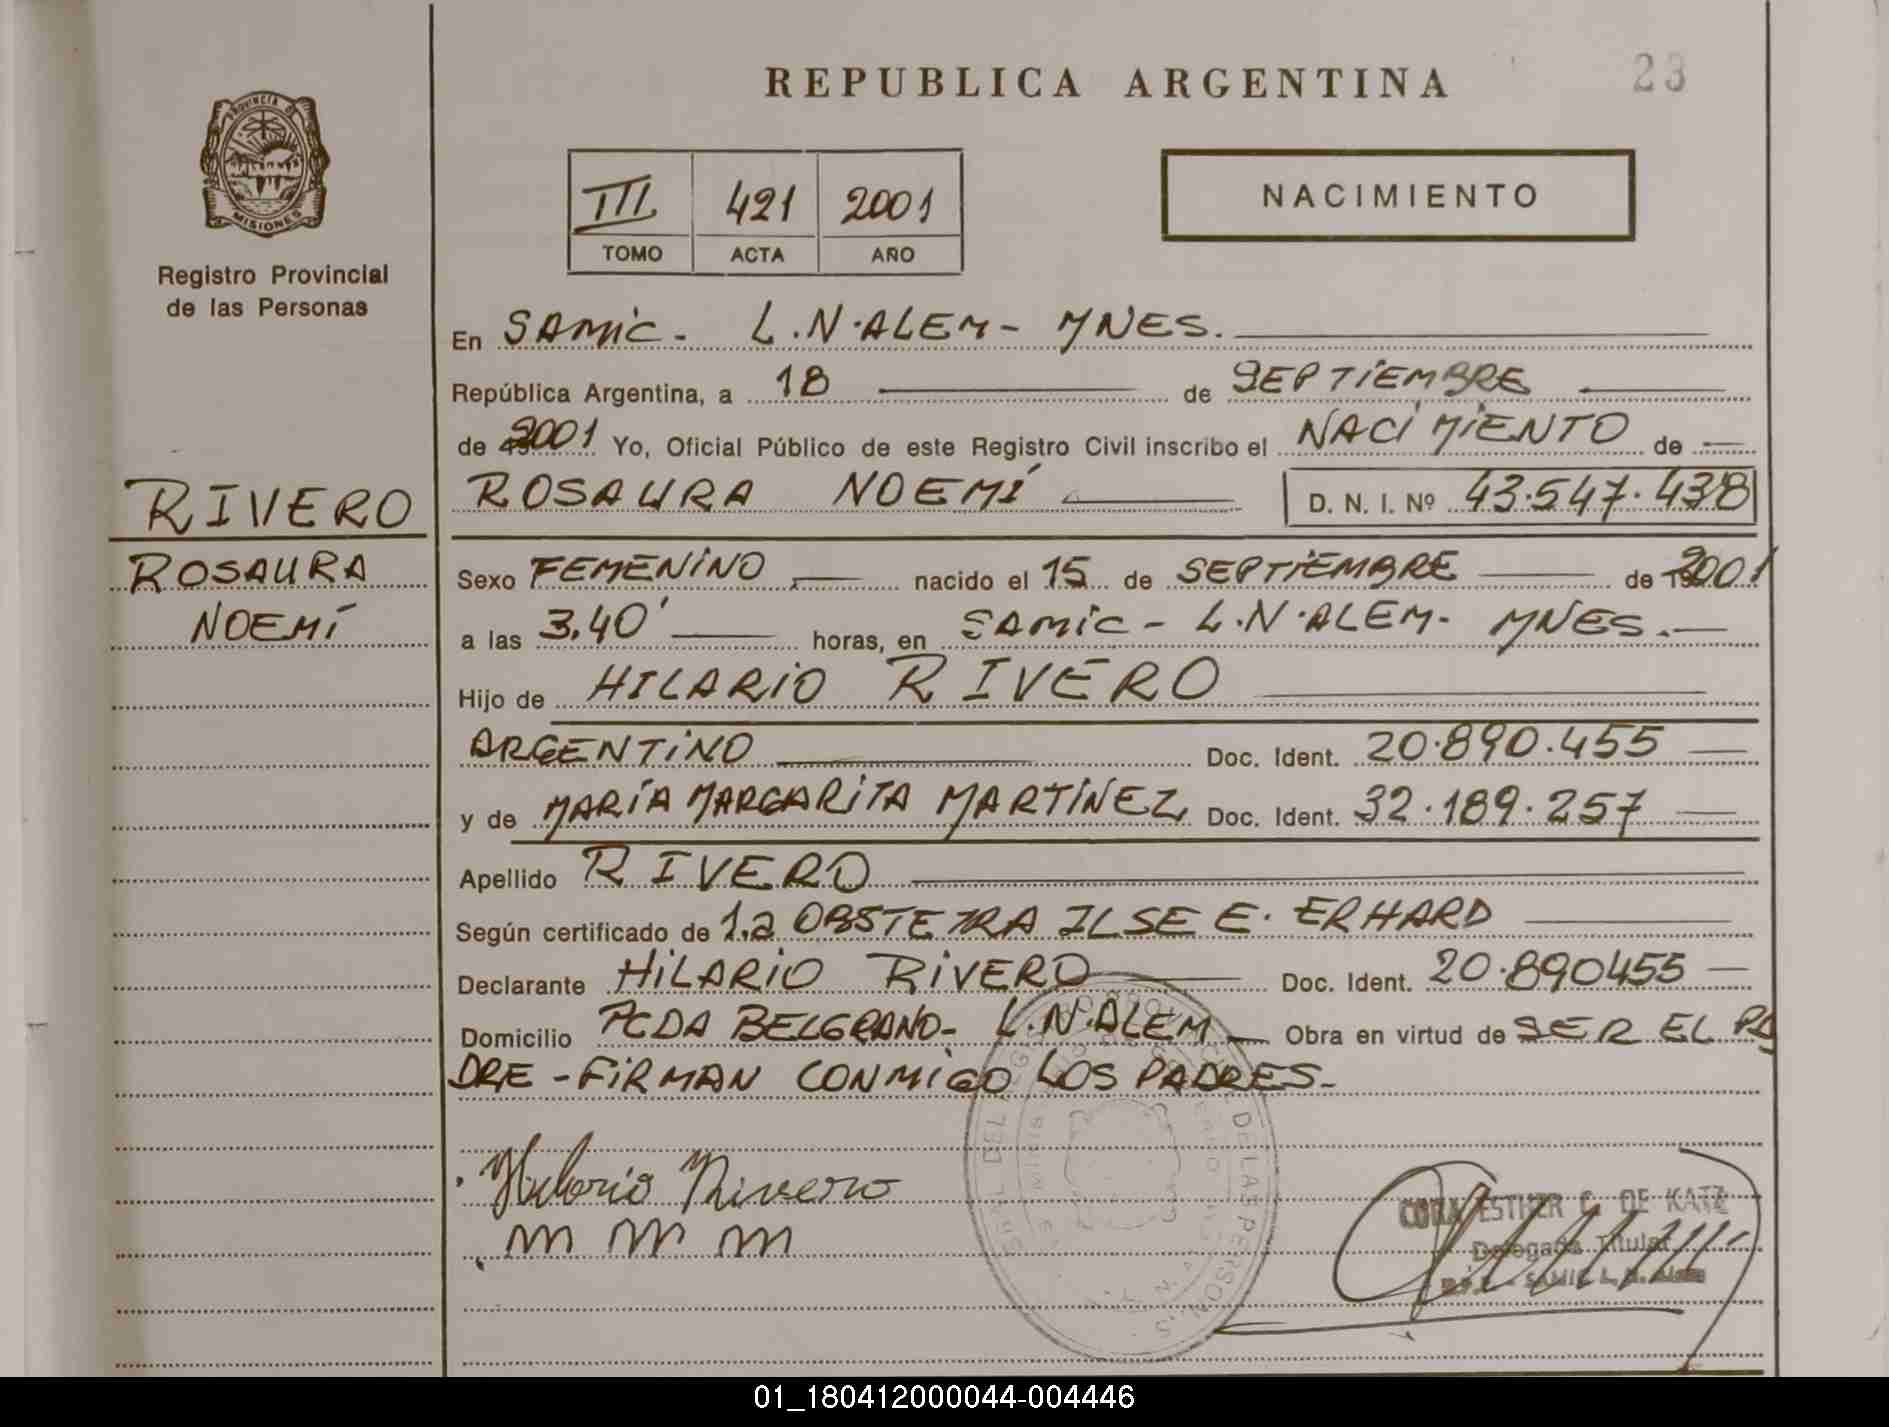 REPUBLICA ARGENTINA
23
PROVINCIA DE
MISIONES
Registro Provincial
de las Personas
III 421 2001
TOMO ACTA AÑO
NACIMIENTO
En SAMIC - L.N.ALEM - MNES.
República Argentina, a 18 de SEPTIEMBRE
de 2001 Yo, Oficial Público de este Registro Civil inscribo el NACIMIENTO de
RIVERO
ROSAURA NOEMÍ D. N. I. Nº 43.547.438
ROSAURA
NOEMÍ
Sexo FEMENINO nacido el 15 de SEPTIEMBRE de 2001
a las 3,40' horas, en SAMIC - L.N.ALEM - MNES.
Hijo de HILARIO RIVERO
ARGENTINO Doc. Ident. 20.890.455
y de MARÍA MARGARITA MARTÍNEZ Doc. Ident. 32.189.257
Apellido RIVERO
Según certificado de 1.a OBSTETRA ILSE E. ERHARD
Declarante HILARIO RIVERO Doc. Ident. 20.890455
Domicilio PCDA BELGRANO - L.N.ALEM Obra en virtud de SER EL PA
DRE - FIRMAN CONMIGO LOS PADRES.
Hilario Rivero
m m m
ESTHER C. DE KATZ
Delegada Titular
SAMIC L. N. Alem
DE LAS PERSONAS
01_180412000044-004446